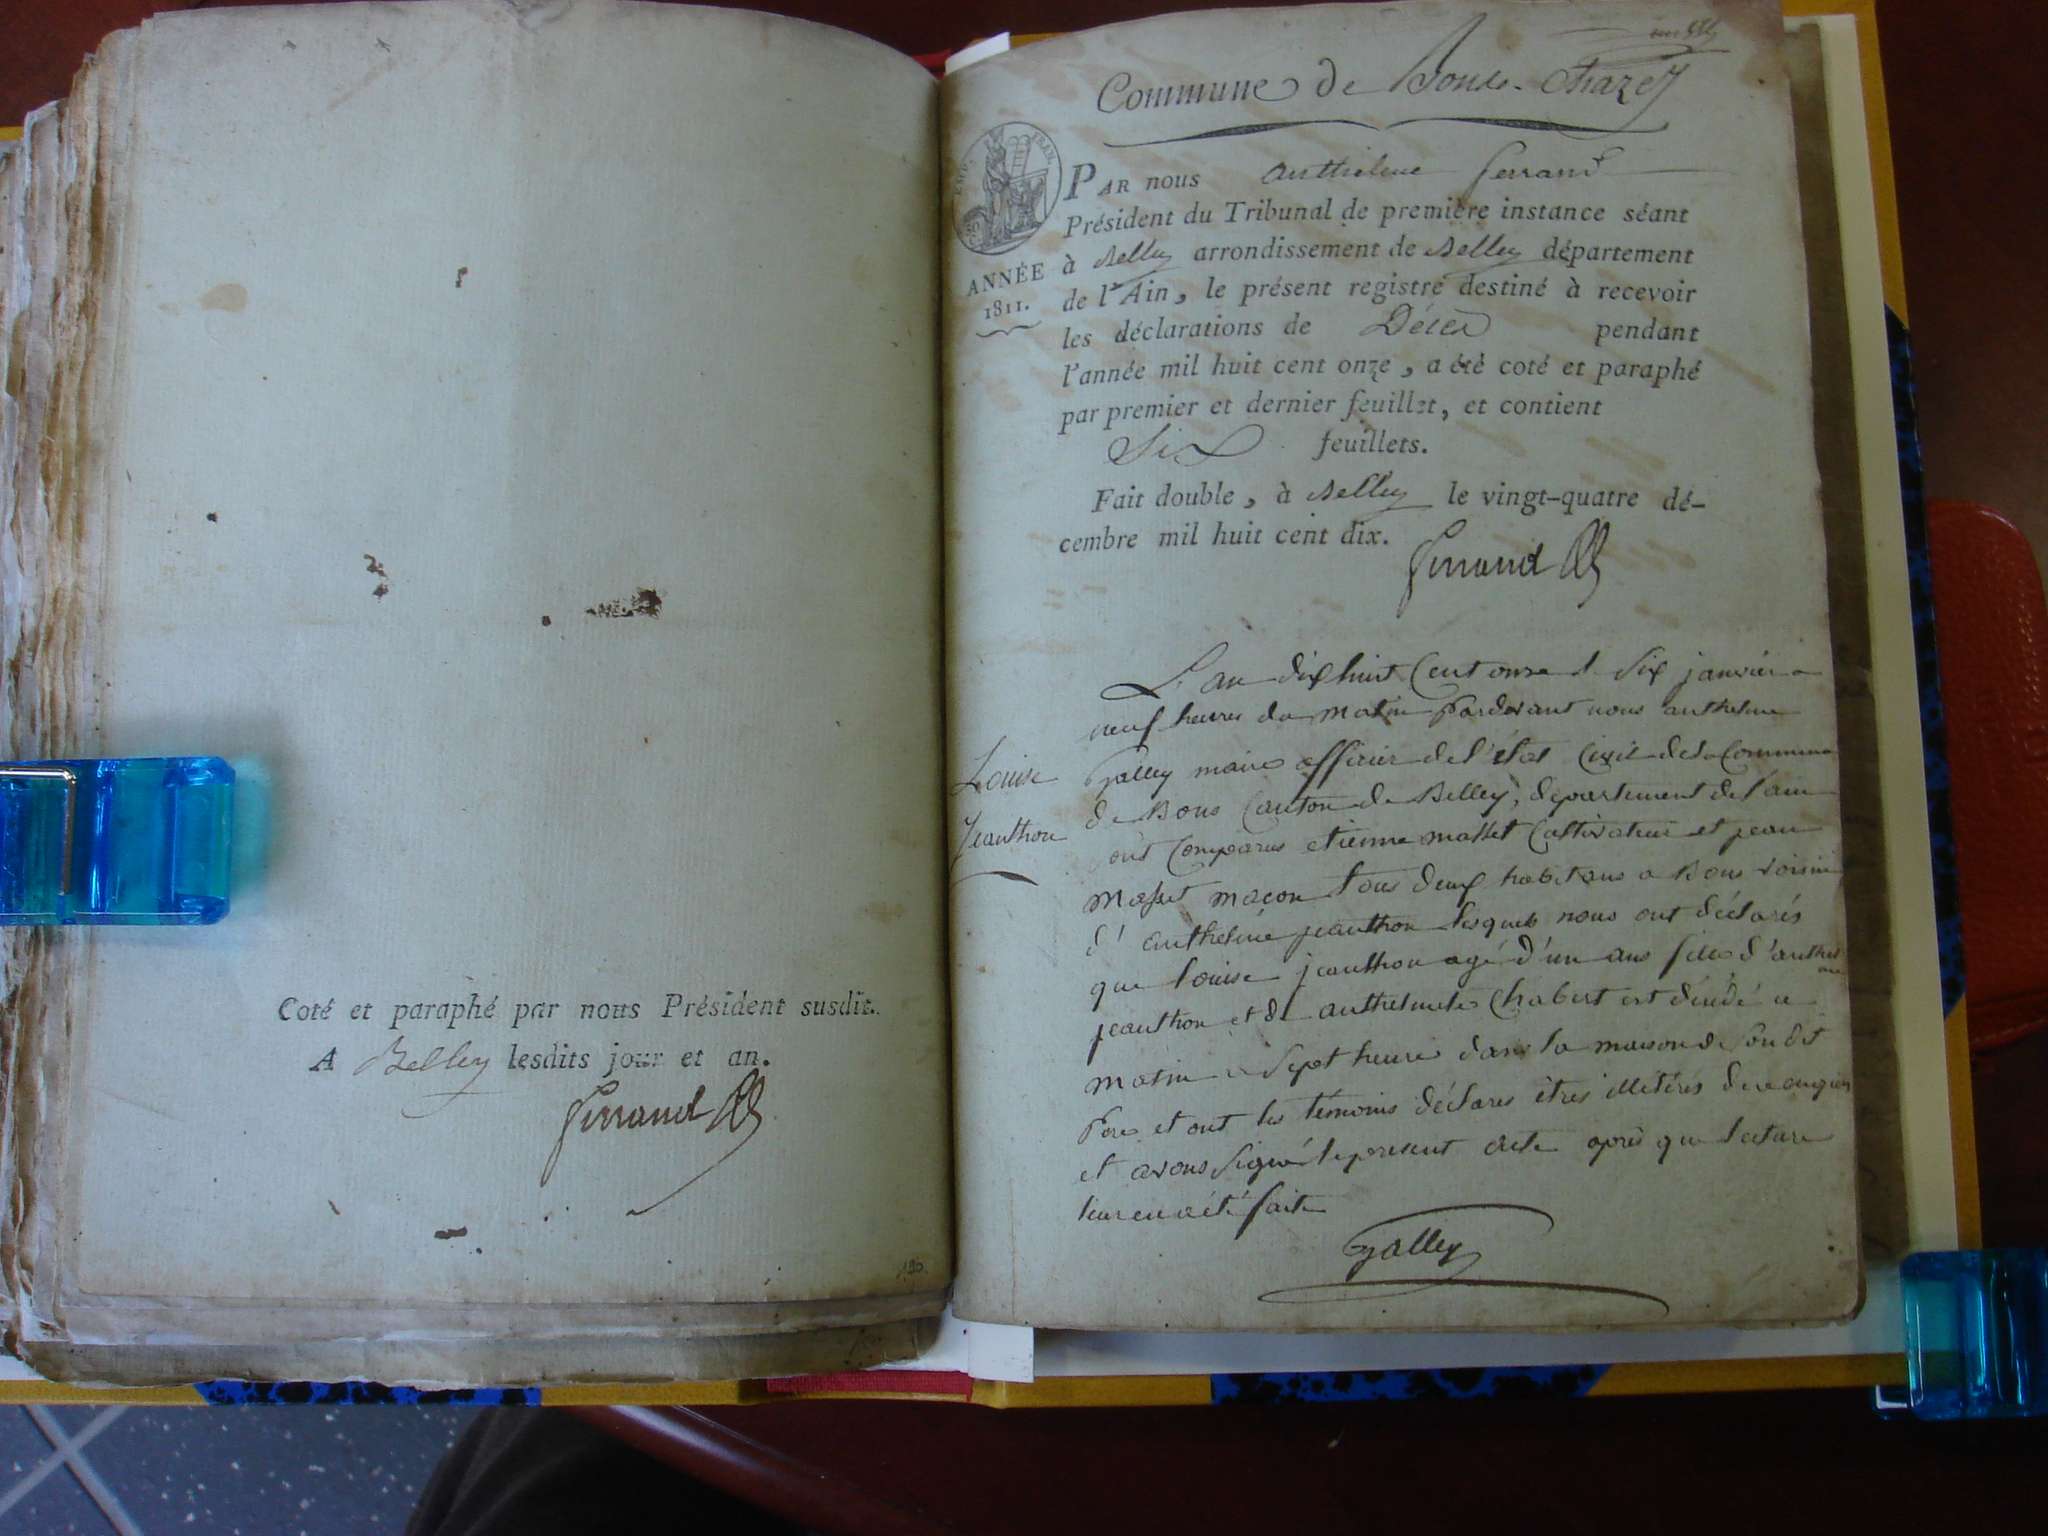 Coté et paraphé par nous Président susdit.
A Belley lesdits jour et an.
Ferrand
190
Commune de Bons. Chazey
EMP. FRAN.
PAR nous Anthelme ferrand
Président du Tribunal de première instance séant
à Belley arrondissement de Belley département
ANNÉE
1811.
de l'Ain, le présent registre destiné à recevoir
les déclarations de Décès pendant
l'année mil huit cent onze, a été coté et paraphé
par premier et dernier feuillet, et contient
Six feuillets.
Fait double, à Belley le vingt-quatre dé-
cembre mil huit cent dix.
Ferrand
Louise
Jeanthon
L'an dix huit Cent onze l Six janvier a
neuf heures du matin pardevant nous anthelme
Galley maire officier de l'état Civil de la Commune
de Bons Canton de Belley, département de l'ain
ont Comparus etienne masset Cultivateur et jean
masset maçon tous deux habitans a Bons voisins
d'anthelme jeanthon lesquels nous ont déclarés
que louise jeanthon agé d'un ans fille d'anthelme
jeanthon et de anthelmete Chabert est décédé ce
matin a Sept heures dans la maison de Son dit
Pere et ont les témoins déclarés êtres illetérés de ce enquis
et avons Signé le present acte après que lecture
leur en a été faite
Galley